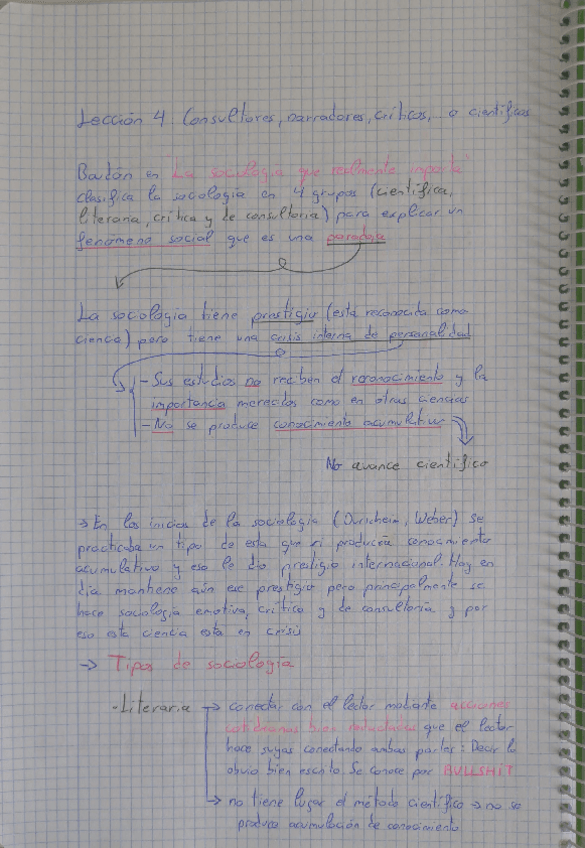 Lección 4 Consultores, narradores, críticos, o científicos
Boudón en "La sociología que realmente importa"
clasifica la sociología en 4 grupos (científica,
literaria, crítica y de consultoría) para explicar un
fenómeno social que es una paradoja
La sociología tiene prestigio (está reconocida como
ciencia) pero tiene una crisis interna de personalidad
- Sus estudios no reciben el reconocimiento y la
importancia merecidos como en otras ciencias
- No se produce conocimiento acumulativo
No avance científico
→ En los inicios de la sociología (Durkheim, Weber) se
practicaba un tipo de esta que si producía conocimiento
acumulativo y eso le dio prestigio internacional. Hoy en
día mantiene aún ese prestigio pero principalmente se
hace sociología emotiva, crítica y de consultoría y por
eso esta ciencia está en crisis
→ Tipos de sociología
- Literaria → conectar con el lector mediante acciones
cotidianas bien redactadas que el lector
hace suyas conectando ambas partes: Decir lo
obvio bien escrito Se conoce por BULLSHIT
→ no tiene lugar el método científico → no se
produce acumulación de conocimiento